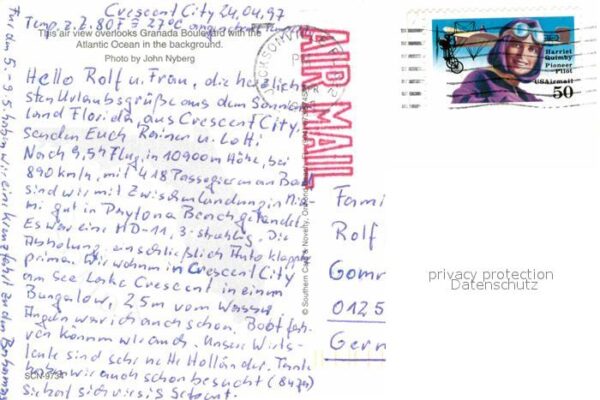 Crescent City 24.04.97
Temp. z.Z. 80F = 27°C
This air view overlooks Granada Boulevard with the
Atlantic Ocean in the background.
Photo by John Nyberg
Hello Rolf u. Frau, die herzlich-
sten Urlaubsgrüße aus dem Sonnen-
land Florida, aus Crescent City,
senden Euch Rainer u. Lotti
Nach 9,5h Flug, in 10900m Höhe, bei
890 km/h, mit 418 Passagieren an Bord
sind wir mit Zwischenlandung in Mia-
mi gut in Daytona Beach gelandet.
Es war eine MD-11, 3-strahlig. Die
Abholung anschließlich Auto klappte
prima. Wir wohnen in Crescent City
am See Lake Crescent in einem
Bungalow, 25m vom Wasser
Angeln war ich auch schon. Boot fah-
ren können wir auch. Unsere Wirts-
leute sind sehr nette Holländer. Tante
haben wir auch schon besucht (84J)
sie hat sich riesig gefreut.
Für den 5.-9.5. haben wir eine Kreuzfahrt zu den Bahamas
SCN-9734
© Southern Card & Novelty,
AIR MAIL
JACKSONVILLE
Harriet
Quimby
Pioneer
Pilot
USAirmail
50
Fami
Rolf
Gomr
0125
Gern
privacy protection
Datenschutz